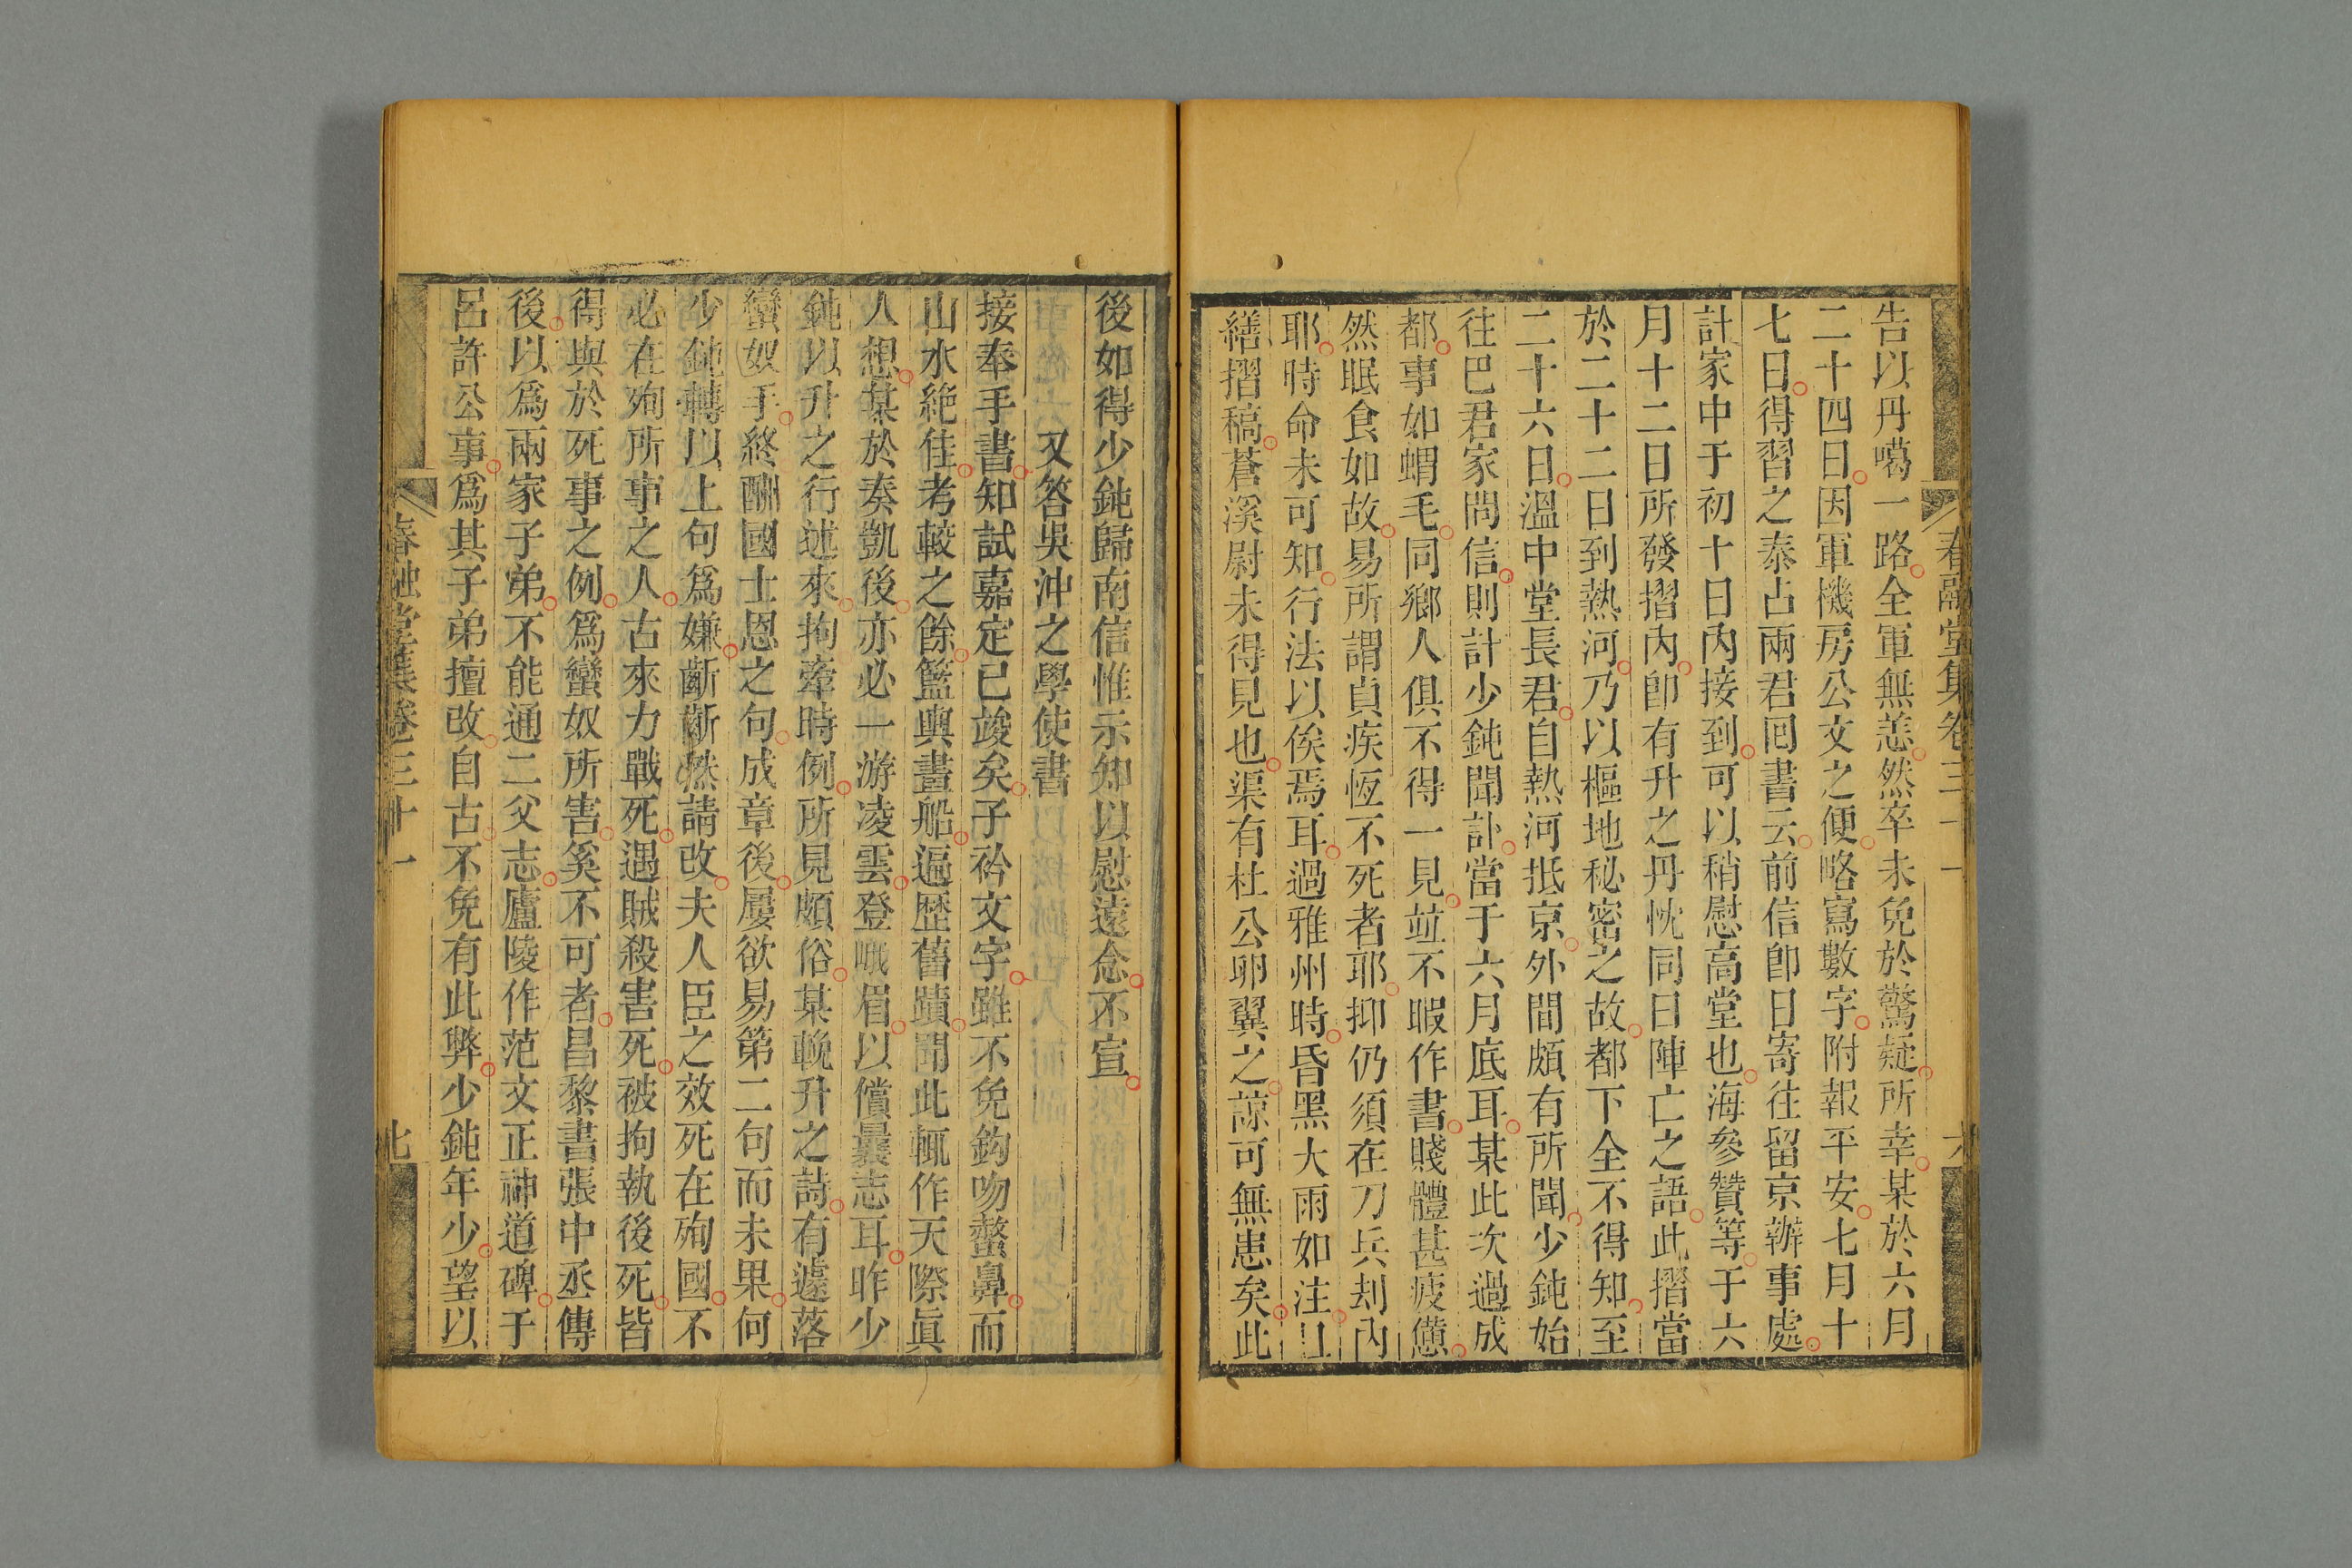 春融堂集卷三十一
六
告以丹噶一路全軍無恙然卒未免於驚疑所幸某於六月
二十四日因軍機房公文之便略寫數字附報平安七月十
七日得習之泰占兩君囘書云前信卽日寄往留京辦事處
計家中于初十日內接到可以稍慰高堂也海參贊等于六
月十二日所發摺內卽有升之丹忱同日陣亡之語此摺當
於二十二日到熱河乃以樞地秘密之故都下全不得知至
二十六日溫中堂長君自熱河抵京外間頗有所聞少鈍始
往巴君家問信則計少鈍聞訃當于六月底耳某此次過成
都事如蝟毛同鄉人俱不得一見竝不暇作書賤體甚疲憊
然眠食如故易所謂貞疾恆不死者耶抑仍須在刀兵刦內
耶時命未可知行法以俟焉耳過雅州時昏黑大雨如注且
繕摺稿蒼溪尉未得見也渠有杜公卵翼之諒可無患矣此
後如得少鈍歸南信惟示知以慰遠念不宣
又答吳沖之學使書
接奉手書知試嘉定已竣矣子衿文字雖不免鈎吻螫鼻而
山水絶佳考較之餘籃輿畫船遍歷舊蹟聞此輒作天際眞
人想某於奏凱後亦必一游凌雲登峨眉以償曩志耳昨少
鈍以升之行述來拘牽時例所見頗俗某輓升之詩有遽落
蠻奴手終酬國士恩之句成章後屢欲易第二句而未果何
少鈍轉以上句爲嫌齗齗然請改夫人臣之效死在殉國不
必在殉所事之人古來力戰死遇賊殺害死被拘執後死皆
得與於死事之例爲蠻奴所害奚不可者昌黎書張中丞傳
後以爲兩家子弟不能通二父志廬陵作范文正神道碑于
呂許公事爲其子弟擅改自古不免有此弊少鈍年少望以
春融堂集卷三十一